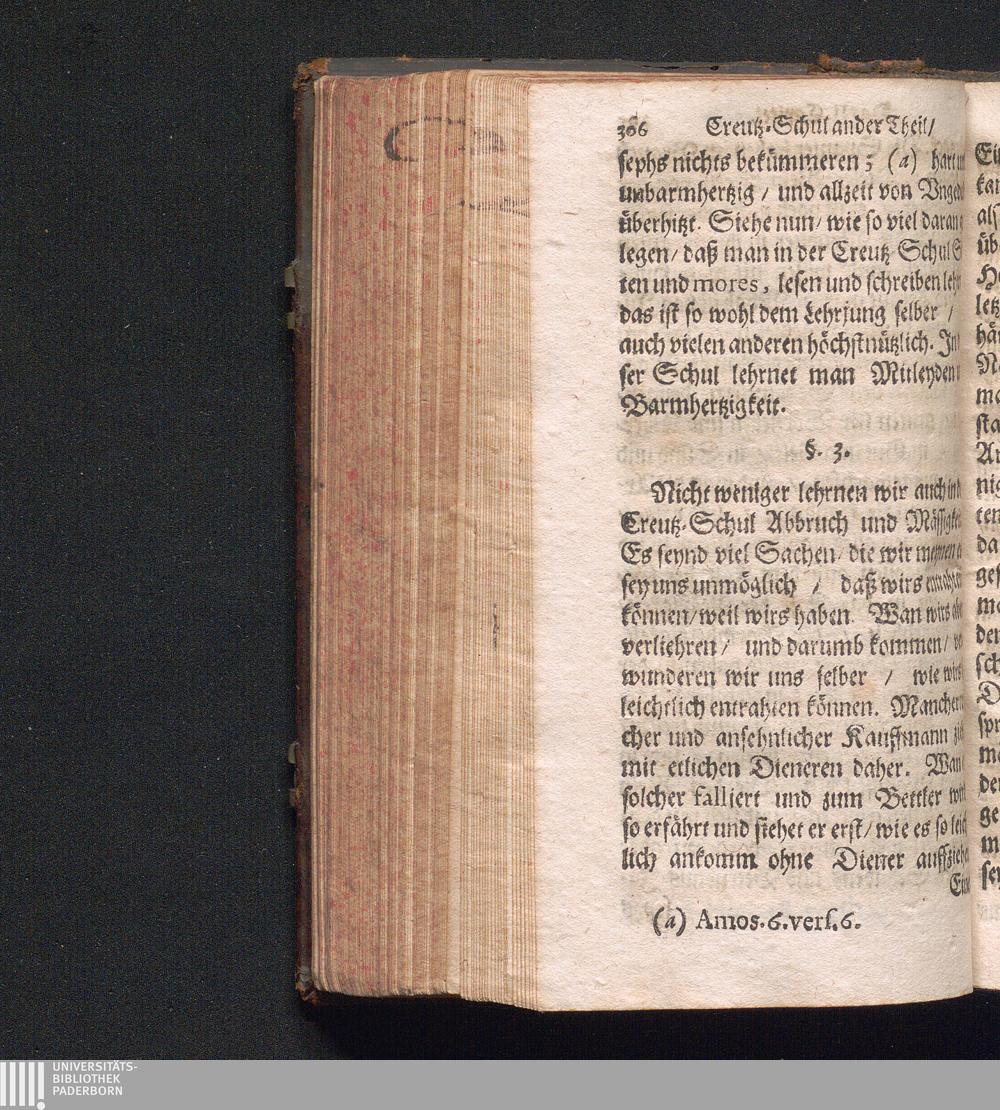 306 Creutz-Schul ander Theil/
sephs nichts bekümmeren; (a) hart
unbarmhertzig / und allzeit von
überhitzt. Siehe nun/ wie so viel daran
legen/ daß man in der Creutz-Schul
ten und mores, lesen und schreiben
das ist so wohl dem Lehrjung selber /
auch vielen anderen höchstnützlich.
ser Schul lehrnet man Mitleyden
Barmhertzigkeit.
§. 3.
Nicht weniger lehrnen wir auch
Creutz-Schul Abbruch und
Es seynd viel Sachen/ die wir
sey uns unmöglich / daß wirs
können/ weil wirs haben. Wan wirs
verliehren / und darumb kommen/
wunderen wir uns selber / wie
leichtlich entrahten können.
cher und ansehnlicher Kauffmann
mit etlichen Dieneren daher. Wan
solcher falliert und zum Bettler
so erfährt und siehet er erst/ wie es so
lich ankomm ohne Diener
(a) Amos. 6. vers. 6.
UNIVERSITÄTS-
BIBLIOTHEK
PADERBORN